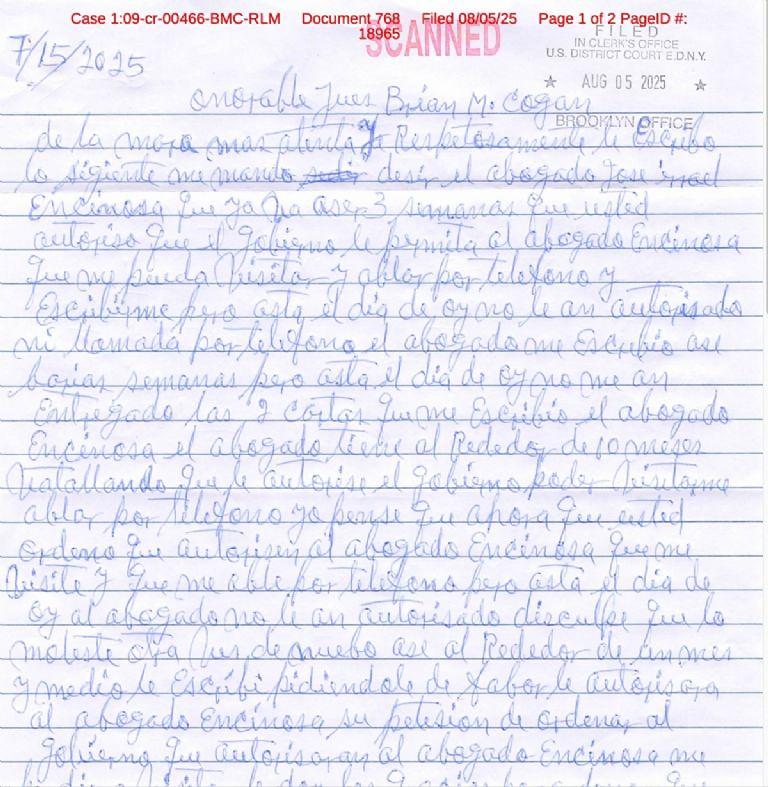 Case 1:09-cr-00466-BMC-RLM Document 768 Filed 08/05/25 Page 1 of 2 PageID #:
18965
SCANNED
FILED
IN CLERK'S OFFICE
U.S. DISTRICT COURT E.D.N.Y.
★ AUG 05 2025 ★
BROOKLYN OFFICE
7/15/2025
onorable Jues Brian M. Cogan
de la mora mas atenta y Respetosamente le Escribo
lo sigiente me mando desir el abogado Jose
Encinosa que ya va aser 3 semanas que usted
autoriso que el gobierno le permita al abogado Encinosa
que me pueda Visitar y ablar por telefono y
Escribirme pero asta el dia de oy no le an autorisado
ni llamada por telefono el abogado me Escribio ase
barias semanas pero asta el dia de oy no me an
Entregado las 2 cartas que me Escribio el abogado
Encinosa el abogado tiene al Rededor de 10 meses
Vatallando que le autorise el gobierno poder Visitarme
ablar por telefono yo pense que ahora que usted
ordeno que autorisen al abogado Encinosa que me
Visite y que me able por telefono pero asta el dia de
oy al abogado no le an autorisado disculpe que lo
moleste otra Vus de nuebo ase al Rededor de un mes
y medio le Escribi pidiendole de fabor le autorisara
al abogado Encinosa su petision de ordenar al
gobierno que autorisaran al abogado Encinosa me